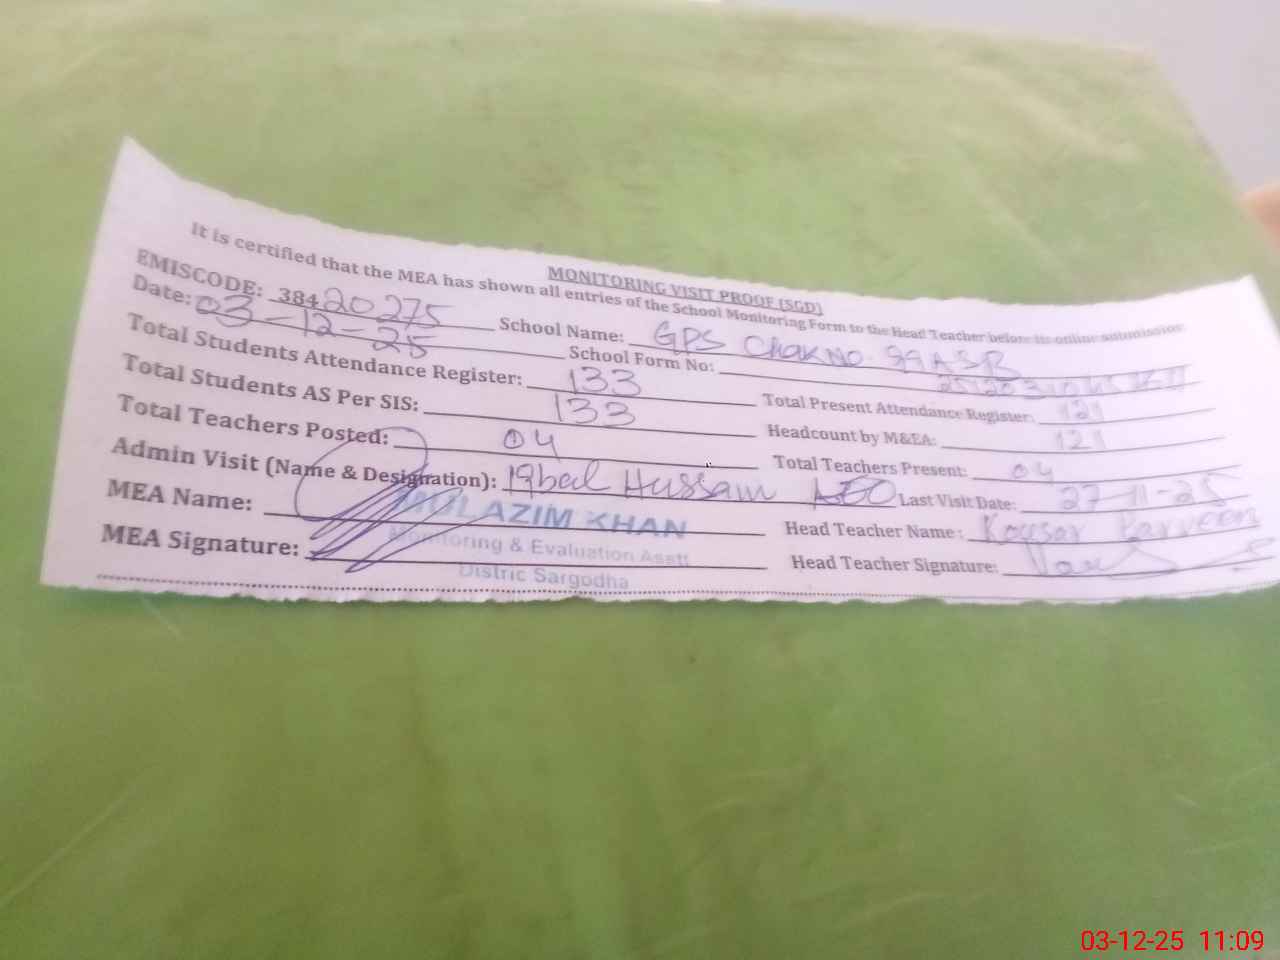 MONITORING VISIT PROOF (SGD)
It is certified that the MEA has shown all entries of the School Monitoring Form to the Head Teacher before its online submission
EMISCODE: 38420275 School Name: GPS Chak No. 99 A SB
Date: 03-12-25 School Form No:
Total Students Attendance Register: 133 Total Present Attendance Register: 121
Total Students AS Per SIS: 133 Headcount by M&EA: 121
Total Teachers Posted: 04 Total Teachers Present: 04
Admin Visit (Name & Designation): Iqbal Hussain AEO Last Visit Date: 27-11-25
MEA Name: AZIM KHAN Head Teacher Name: Kousar Parveen
Monitoring & Evaluation Asstt
MEA Signature: Head Teacher Signature:
Distric Sargodha
03-12-25 11:09